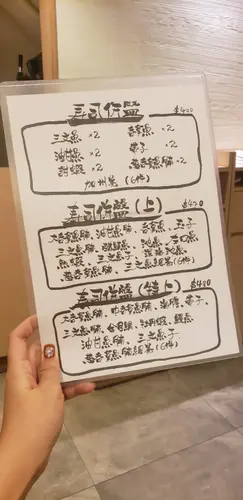 寿司併盤 $400
三文魚 ×2 吞拿魚 ×2
油甘魚 ×2 帶子 ×2
甜蝦 ×2 葱吞拿魚腩 ×2
加州卷 (6件)
寿司併盤(上) $420
大吞拿魚腩、油甘魚腩、吞魚、玉子
三文魚腩、甜蝦、池魚、左口魚
魚蝦、三文魚子
葱吞拿魚腩、三文魚腩卷(6件)
寿司併盤(特上) $480
大吞拿魚腩、中吞拿魚腩、海膽、帶子、
三文魚腩、金目鯛、牡丹蝦、
油甘魚腩、三文魚子
葱吞拿魚腩細卷(6件)